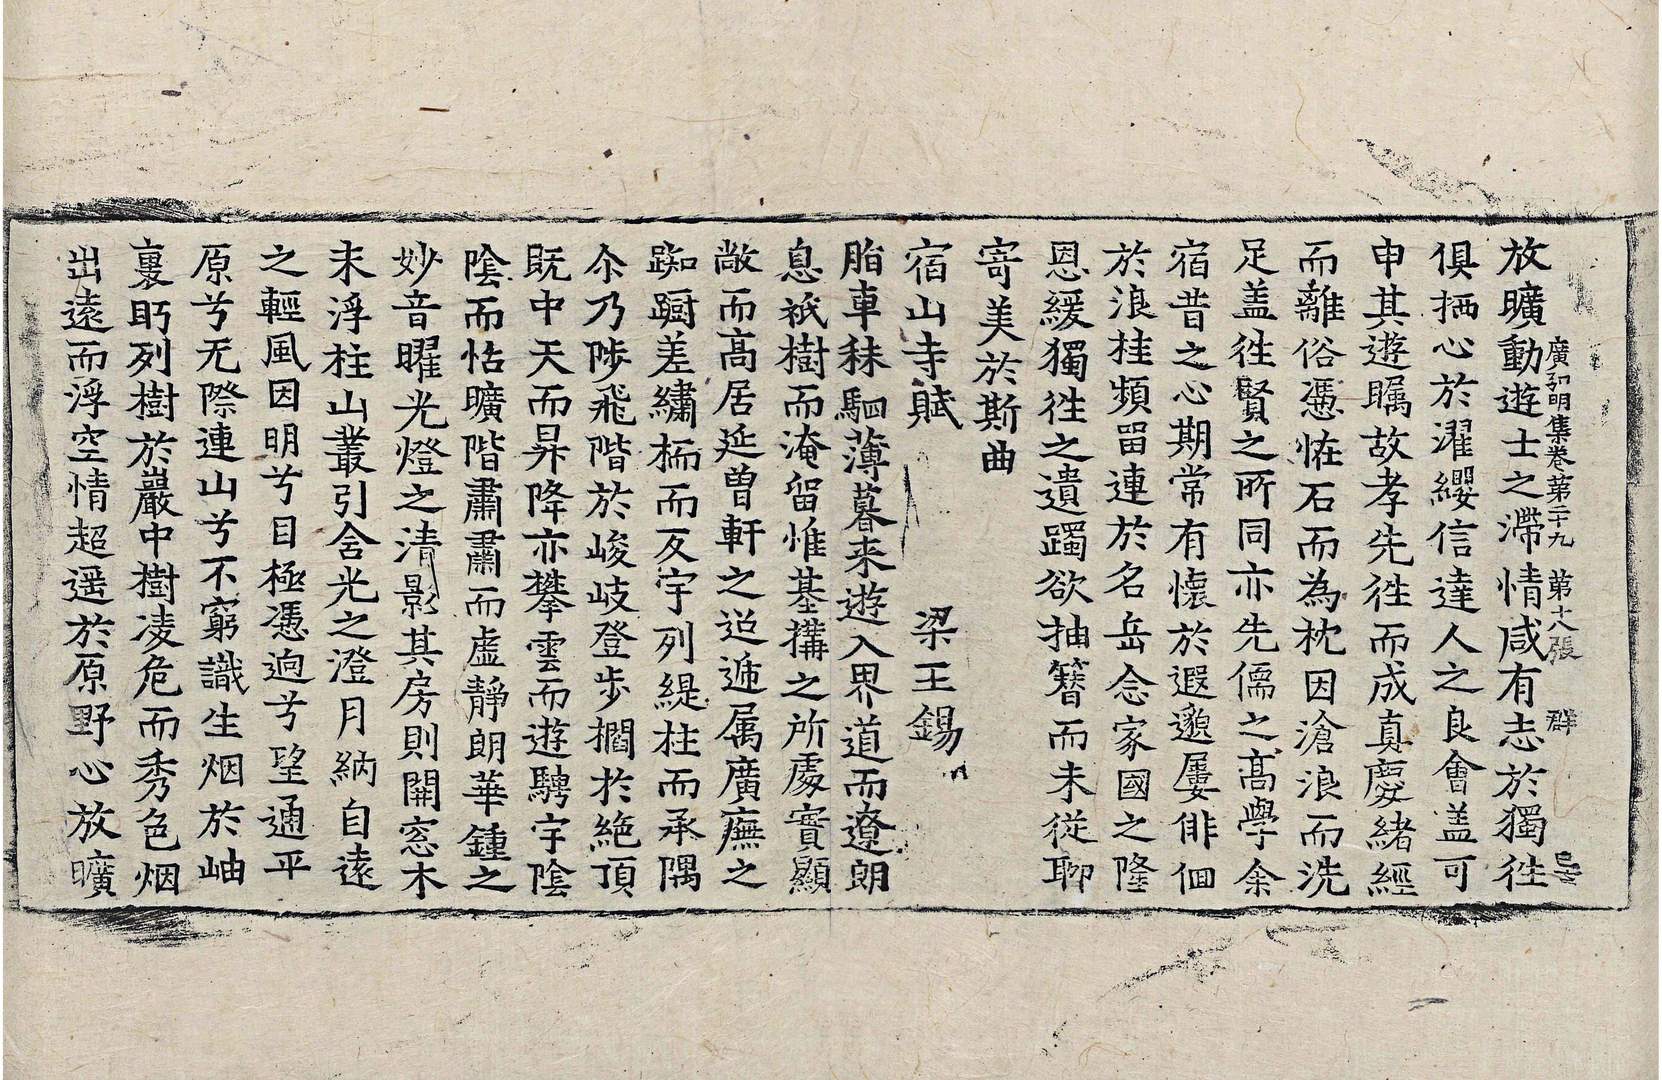 廣弘明集卷第二十九 第十八張 群
放曠動遊士之滯情咸有志於獨徃
俱栖心於濯纓信達人之良會盖可
申其遊矚故孝先徃而成真慶緒經
而離俗憑恠石而為枕因滄浪而洗
足盖徃賢之所同亦先儒之髙學余
宿昔之心期常有懷於遐邈屢俳佪
於浪挂頻留連於名岳念家國之隆
恩緩獨徃之遺躅欲抽簪而未從聊
寄美於斯曲
宿山寺賦 梁王錫
脂車秣駟薄暮来遊入界道而遼朗
息祇樹而淹留惟基構之所處實顯
敞而髙居延曾軒之迢遞属廣廡之
踟蹰差繡栭而反宇列緹柱而承隅
尒乃陟飛階於峻岐登步櫩扵絶頂
既中天而昇降亦攀雲而遊騁宇隂
隂而怙曠階肅肅而虛靜朗華鍾之
妙音曜光燈之清影其房則開窓木
末浮柱山叢引含光之澄月納自遠
之輕風因明兮目極憑逈兮望通平
原兮无際連山兮不窮識生烟於岫
裏眄列樹於巖中樹凌危而秀色烟
出遠而浮空情超遥於原野心放曠